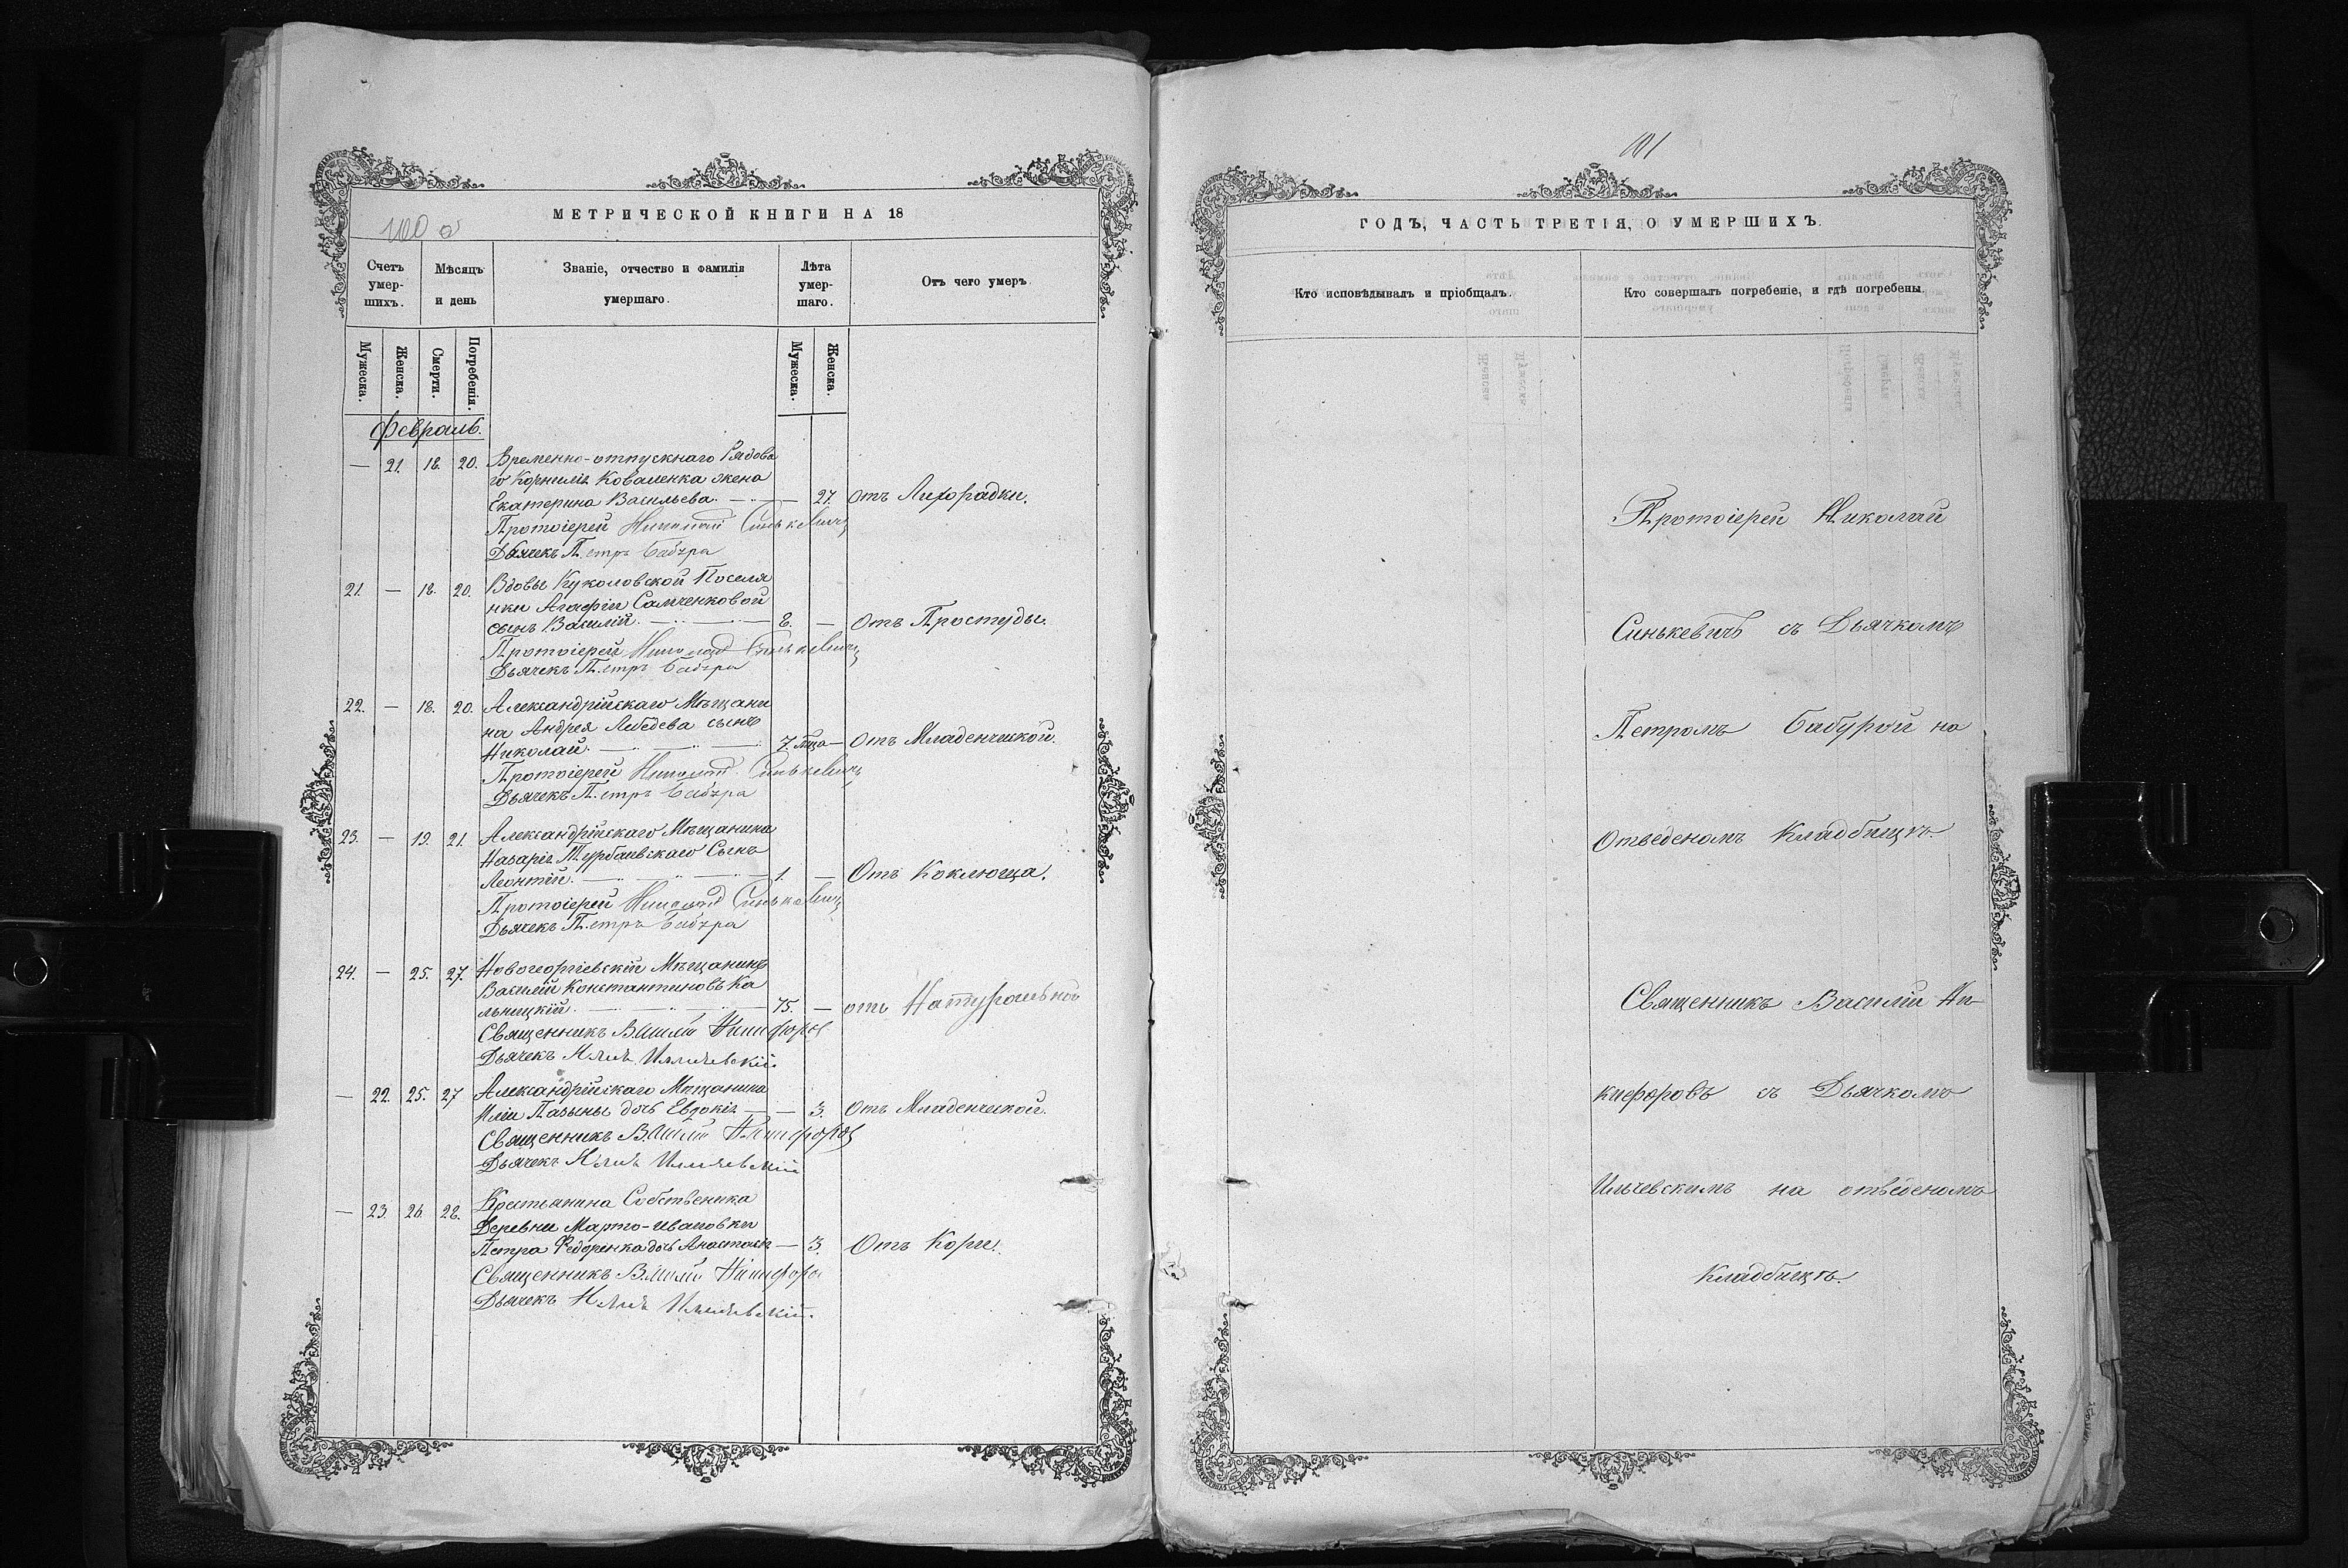 МЕТРИЧЕСКОЙ КНИГИ НА 18
100 об
Счетъ умер-шихъ.
Мѣсяцъ и день
Званіе, отчество и фамилія умершаго.
Лѣта умер-шаго.
Отъ чего умеръ
Мужеска.
Женска.
Смерти.
Погребенія.
Мужеска.
Женска.
Февраль.
— 21. 18. 20. Временно-отпускнаго Рядова
го Корнилія Коваленка жена
Екатерина Васильева. — 27. отъ Лихорадки.
Протоіерей Николай Синькевичъ
Дьячекъ Петръ Бабура
21. — 18. 20. Вдовы Куколовской Поселя
нки Агафіи Самченковой
сынъ Василій. 8. — Отъ Простуды.
Протоіерей Николай Синькевичъ
Дьячекъ Петръ Бабура
22. — 18. 20. Александрійскаго Мѣщани
на Андрея Лебедева сынъ
Николай. 7. мца — Отъ Младенческой.
Протоіерей Николай Синькевичъ
Дьячекъ Петръ Бабура
23. — 19. 21. Александрійскаго Мѣщанина
Назарія Турбаевскаго Сынъ
Леонтій. 1. — Отъ Коклюша.
Протоіерей Николай Синькевичъ
Дьячекъ Петръ Бабура
24. — 25. 27. Новогеоргіевскій Мѣщанинъ
Василій Константиновъ Ка
льницкій. 75. — отъ Натуральной
Священникъ Василій Никифоров
Дьячекъ Илія
— 22. 25. 27 Александрійскаго Мѣщанина
Иліи дочь Евдокія — 3. Отъ Младенческой.
Священникъ Василій Никифоров
Дьячекъ Илія
— 23. 26. 28. Крестьянина Собственика
Деревни Марто-Ивановки
Петра Федоренка дочь Анастасія — 3. Отъ Кори.
Священникъ Василій Никифоров
Дьячекъ Илія
101
ГОДЪ, ЧАСТЬ ТРЕТІЯ, О УМЕРШИХЪ.
Кто исповѣдывалъ и пріобщалъ.
Кто совершалъ погребеніе, и гдѣ погребены.
Протоіерей Николай
Синькевичъ съ Дьячкомъ
Петромъ Бабурой на
Отведеномъ Кладбищѣ.
Священникъ Василій Ни-
кифоровъ съ Дьячкомъ
Ильчевскимъ на отведеномъ
Кладбищѣ.